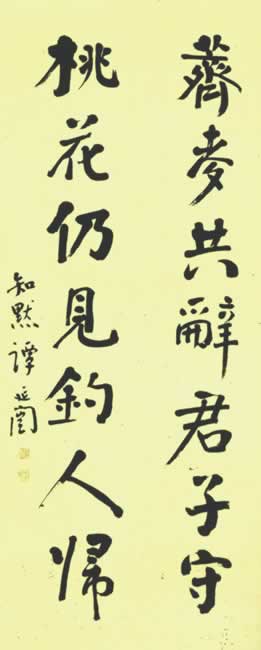 薺麥共辭君子守
桃花仍見釣人歸
知默 譚延闓